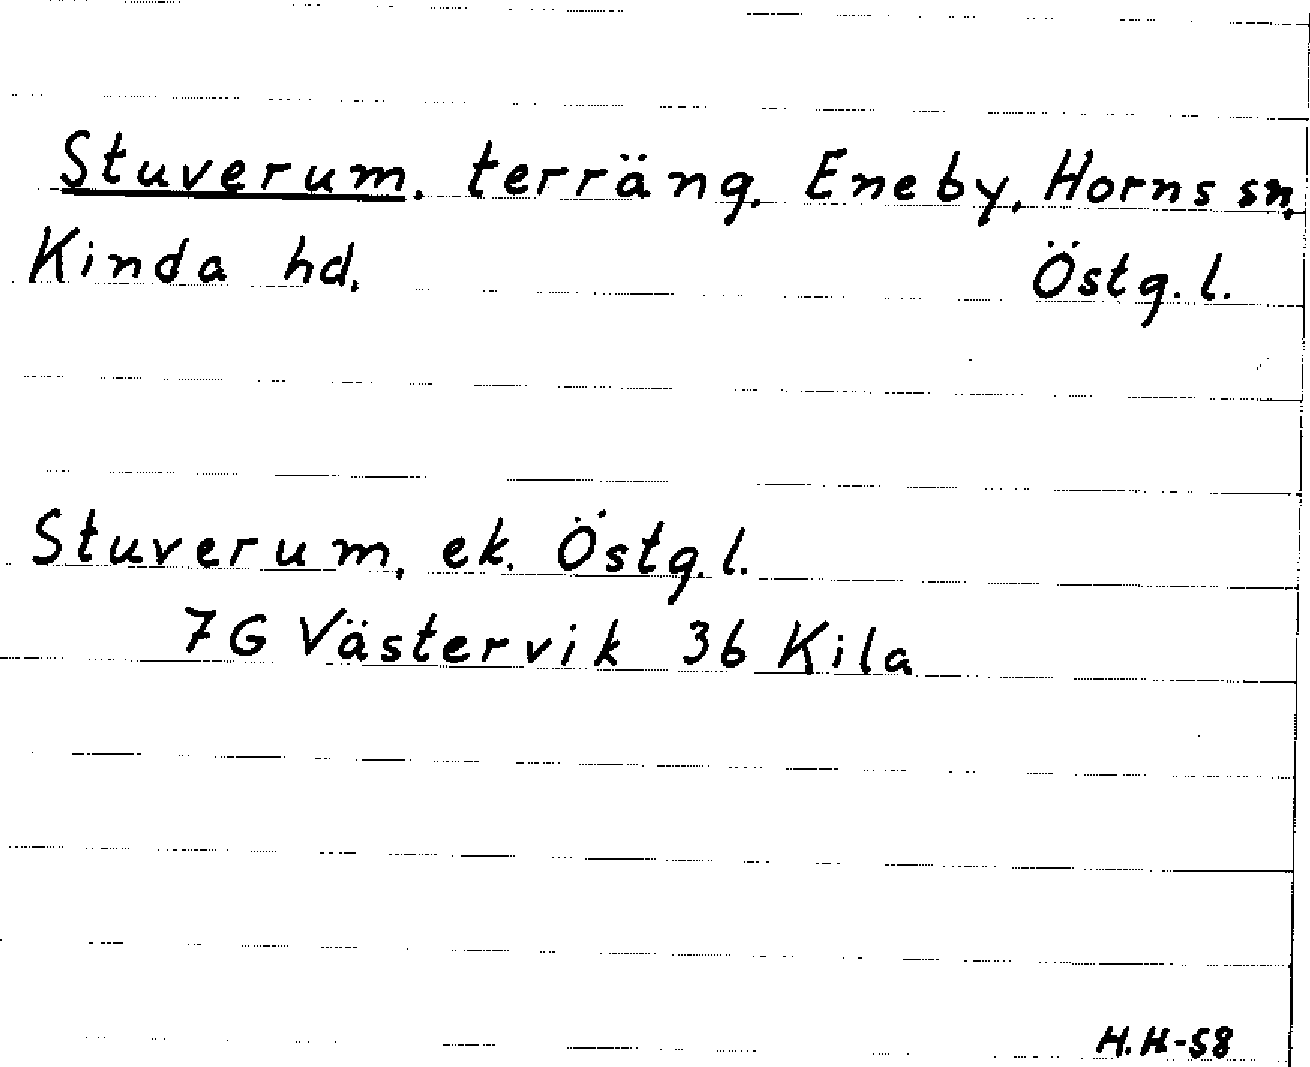 Stuverum, terräng, Eneby, Horns sn,
Kinda hd, Östg. l.
Stuverum, ek. Östg. l.
7G Västervik 3b Kila
H.H-58